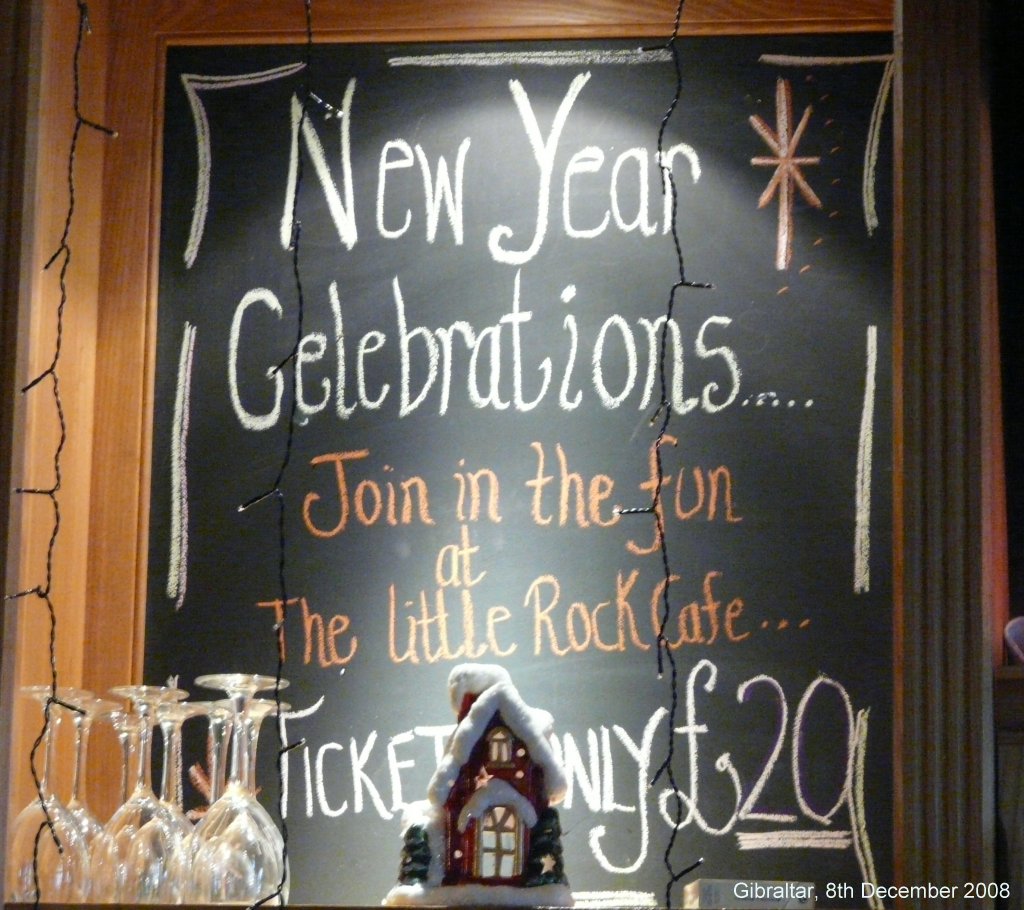 New Year
Celebrations.....
Join in the fun
at
The little Rock Cafe...
TICKET ONLY £20
Gibraltar, 8th December 2008